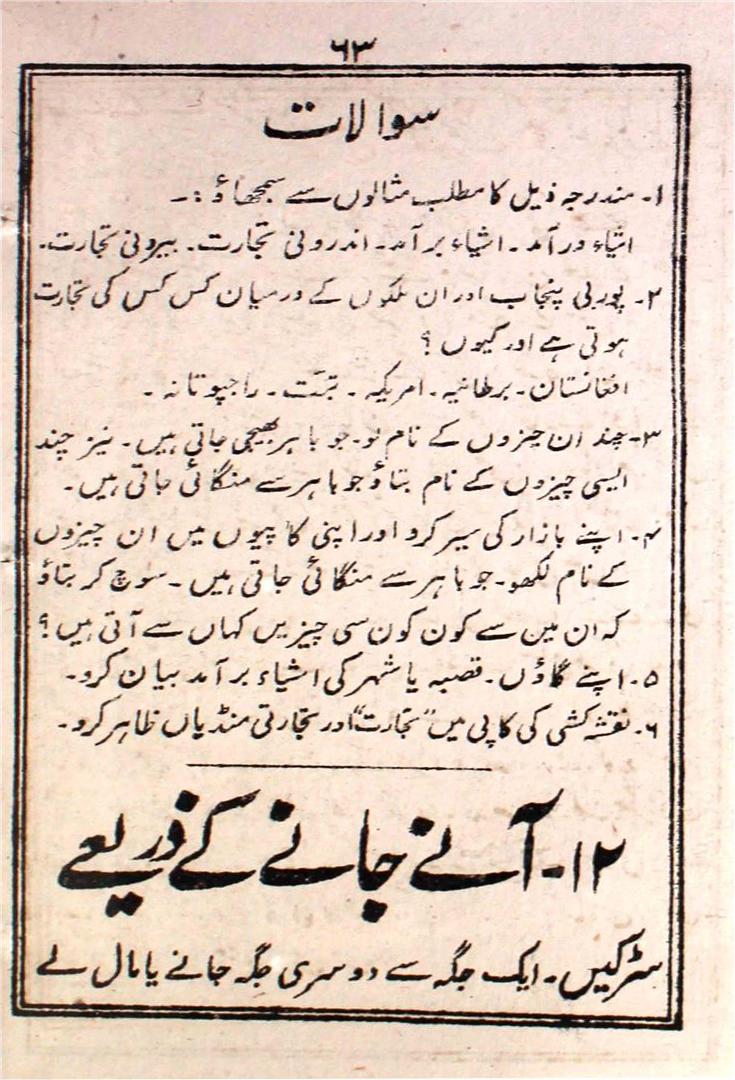 ۶۳
سوالات
۱۔ مندرجہ ذیل کا مطلب مثالوں سے سمجھاؤ :۔
اشیاء درآمد۔ اشیاء برآمد۔ اندرونی تجارت۔ بیرونی تجارت۔
۲۔ پوربی پنجاب اور ان ملکوں کے درمیان کس کس کی تجارت
ہوتی ہے اور کیوں ؟
افغانستان۔ برطانیہ۔ امریکہ۔ تبت۔ راجپوتانہ۔
۳۔ چند ان چیزوں کے نام لو۔ جو باہر بھیجی جاتی ہیں۔ نیز چند
ایسی چیزوں کے نام بتاؤ جو باہر سے منگائی جاتی ہیں۔
۴۔ اپنے بازار کی سیر کرو اور اپنی کاپیوں میں ان چیزوں
کے نام لکھو۔ جو باہر سے منگائی جاتی ہیں۔ سوچ کر بتاؤ
کہ ان مین سے کون کون سی چیزیں کہاں سے آتی ہیں؟
۵۔ اپنے گاؤں۔ قصبہ یا شہر کی اشیاء برآمد بیان کرو۔
۶۔ نقشہ کشی کی کاپی میں "تجارت" اور تجارتی منڈیاں ظاہر کرو۔
۱۲۔ آنے جانے کے ذریعے
سڑکیں۔ ایک جگہ سے دوسری جگہ جانے یا مال لے